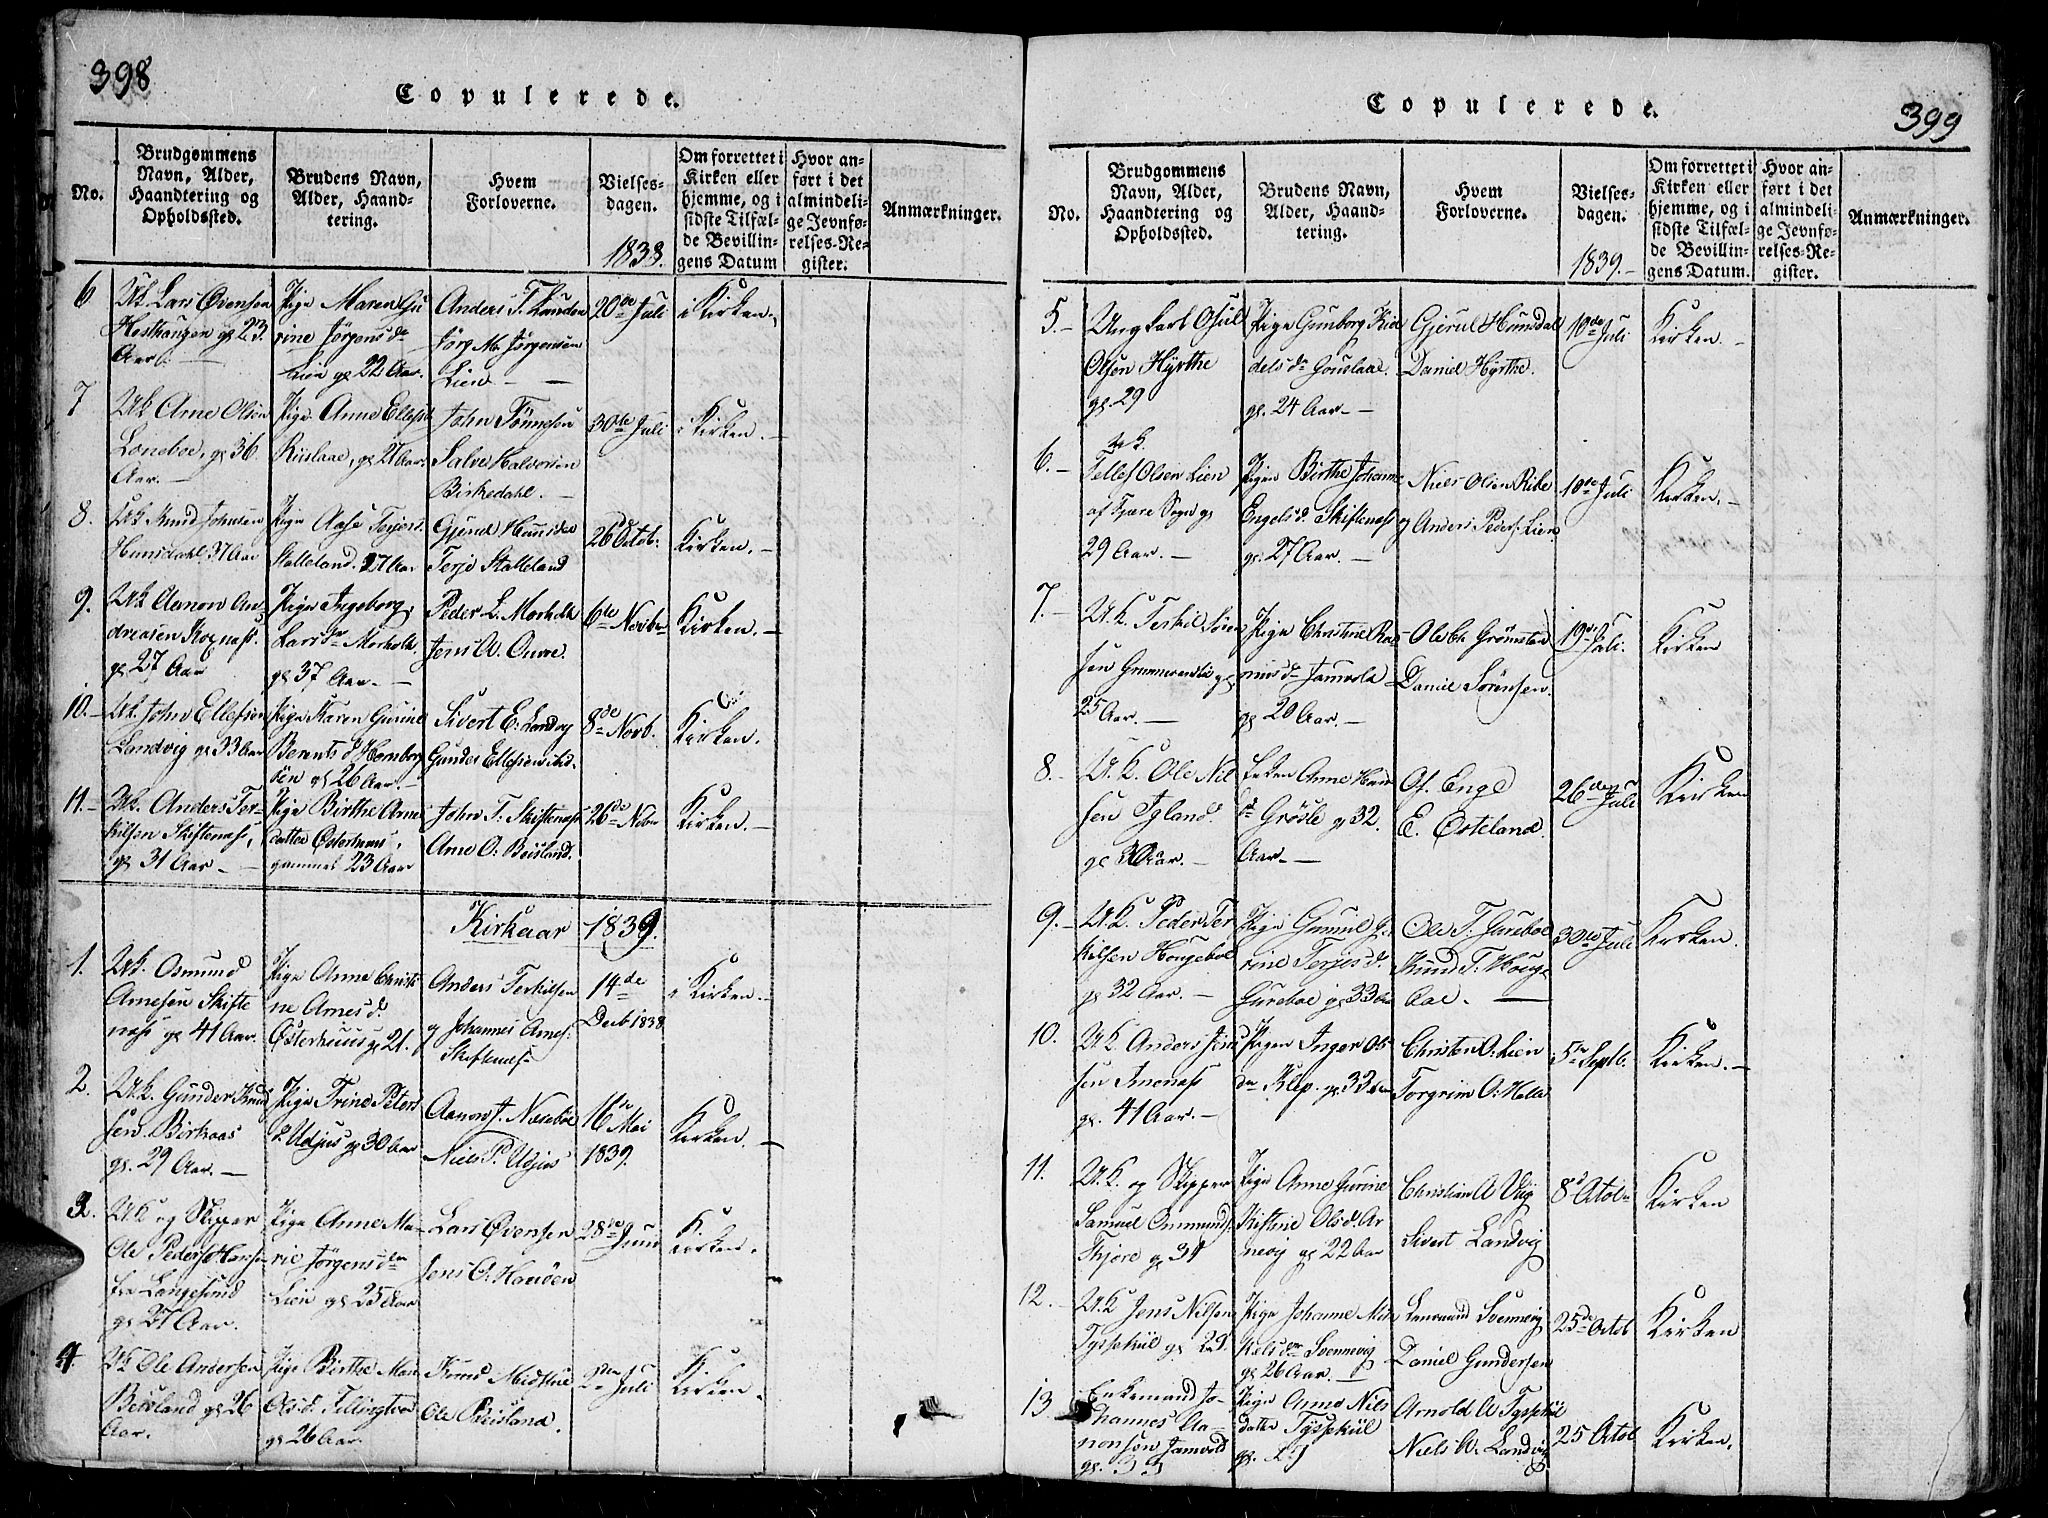 398
Copulerede.
No.
Brudgommens
Navn, Alder,
Haandtering og
Opholdssted.
Brudens Navn,
Alder, Haand-
tering.
Hvem
Forloverne.
Vielses-
dagen.
1838.
Om forrettet i
Kirken eller
hjemme, og i
sidste Tilfæl-
de Bevillin-
gens Datum
Hvor an-
ført i det
almindeli-
ge Jevnfø-
relses-Re-
gister.
Anmærkninger.
6
UK Lars Øvensen
gl 23
Aar.
Pige Maren Gu
rine Jørgensdr
Lien gl 22 Aar.
Anders T.
Jørg M. Jørgensen
Lien
20de Juli
i Kirken.
7
UK Arne Olsen
Løneboe, gl 36
Aar.
Pige Anne Ellefsd
Riislaae, gl 21 Aar.
John Tønnesen
Salve Halvorsen
Birkedahl.
30te Juli
i Kirken.
8.
UK Knud Johnsen
Hunsdahl 37 Aar
Pige Aase Terjesd.
Stalleland. 27 Aar
Terje Stalleland
26 Octob.
Kirken.
9.
UK Aanon An
dreasen
gl 27 Aar
Pige Ingeborg
Larsdr Morholt
gl 37 Aar.
Peder L. Morholt
Jens A.
6te Novbr
Kirken.
10.
UK John Ellefsen
Landvig gl 33 Aar
Pige Karen Gurine
Berentsd Homborg
øen gl 26 Aar.
Sivert E. Landvig
Gunder Ellefsen
8de Novb.
Kirken.
11.
UK. Anders Ter
kilsen Skiftenæs,
gl 31 Aar
Pige Birthe Arne
datter Østerhuus,
gammel 23 Aar
John T. Skiftenæs
Arne O. Beisland.
26de Nobr
Kirken.
Kirkeaar 1839.
1.
UK. Osmund
Arnesen Skifte
næs gl 41 Aar.
Pige Anne Christi
ne Arnesd
Østerhuus gl 21.
Anders Terkilsen
og Johannes Arnes.
Skiftenæs
14de
Decb 1838
i Kirken.
2.
UK. Gunder Knud
sen Birkaas
gl. 29 Aar.
Pige Trine Peters
d. Udjus gl 30 Aar
Aanon J.
Niels P. Udjus
16de Mai
1839.
Kirken.
3.
UK og Skipper
Ole Peders
fra Langesund
gl 27 Aar.
Pige Anne Ma
rie Jørgensdr
Lien gl 25 Aar
Lars Øvensen
Jens O.
28de Juni
Kirken.
4.
UK Ole Andersen
Beisland gl 26
Aar.
Pige Birthe Mari
Olsd.
gl 26 Aar.
Ole Beisland.
2den Juli
Kirken.
399
Copulerede.
No.
Brudgommens
Navn, Alder,
Haandtering og
Opholdssted.
Brudens Navn,
Alder, Haand-
tering.
Hvem
Forloverne.
Vielses-
dagen.
1839.
Om forrettet i
Kirken eller
hjemme, og i
sidste Tilfæl-
de Bevillin-
gens Datum.
Hvor an-
ført i det
almindeli-
ge Jevnfø-
relses-Re-
gister.
Anmærkninger.
5.
Ungkarl Osul
Olsen Hyrthe
gl. 29
Pige Gunborg Kid
delsdr
gl. 24 Aar.
Gjerul Hunsdal
Daniel Hyrthe.
10de Juli
Kirken.
6.
UK.
Tellef Olsen Lien
af Fjære Sogn gl
29 Aar.
Pigen Birthe Johanne
Engelsd. Skiftenæs
gl. 27 Aar.
Niels Olsen Ribe
og Anders Peders. Lien
10de Juli
Kirken.
7.
UK. Terkil Søren
sen
25 Aar.
Pige Christine Ras
musd. Jamvold
gl 20 Aar.
Ole Ch. Grømsten
Daniel Sørensen.
19de Juli.
Kirken
8.
UK. Ole Nil
sen Igland.
gl 30 Aar.
Enken Anne Hans
dr Grøsle gl 32.
Aar.
Of. Enge
E. Østeland
26de Juli
Kirken
9.
UK. Peder Ter
kilsen Hougeboe
gl 32 Aar.
Pige Gunnil Gu
rine Terjesd.
Gureboe gl 33 Aar
Ole T. Gureboe
Knud T. Houge
boe.
30te Juli
Kirken.
10.
UK. Anders Jens
sen
gl. 41 Aar.
Pigen Inger Ols
dr Klep gl 33 Aar
Christen O. Lien
Torgrim O. Holte
5te Septb.
Kirken.
11.
UK. og Skipper
Samuel Ommunds.
gl 34
Pige Anne Gurine
Kistine Olsd. Ar
nevig gl 22 Aar
Christian A Vig
Sivert Landvig
8d Octobr
Kirken
12.
UK Jens Nilsen
Tyssekiil gl 28.
Pige Johanne Mik
kelsdr Svennevig
gl 26 Aar.
Svennevig
Daniel Gundersen
25de Octob
Kirken
13
Enkemand Jo
hannes Aa
nonsen Jamvold
gl. 33
Pige Anne Nils
datter Tyssekiil
gl. 27
Arnold A Tyssekiil
Niels A. Landvig
25 Octob
Kirken.